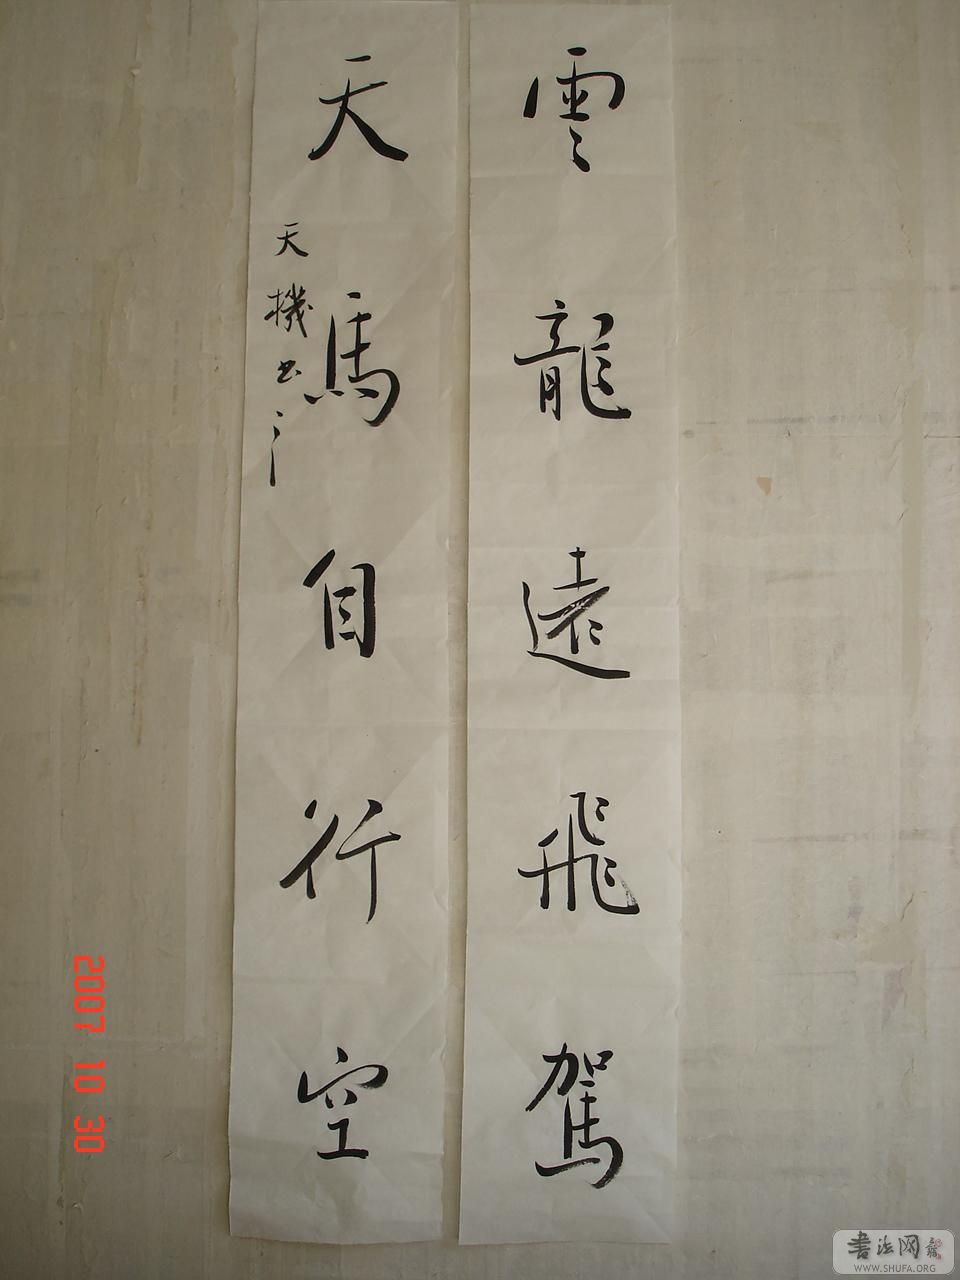 雲龍遠飛駕
天馬自行空
天機書
2007 10 30
书法网
WWW.SHUFA.ORG